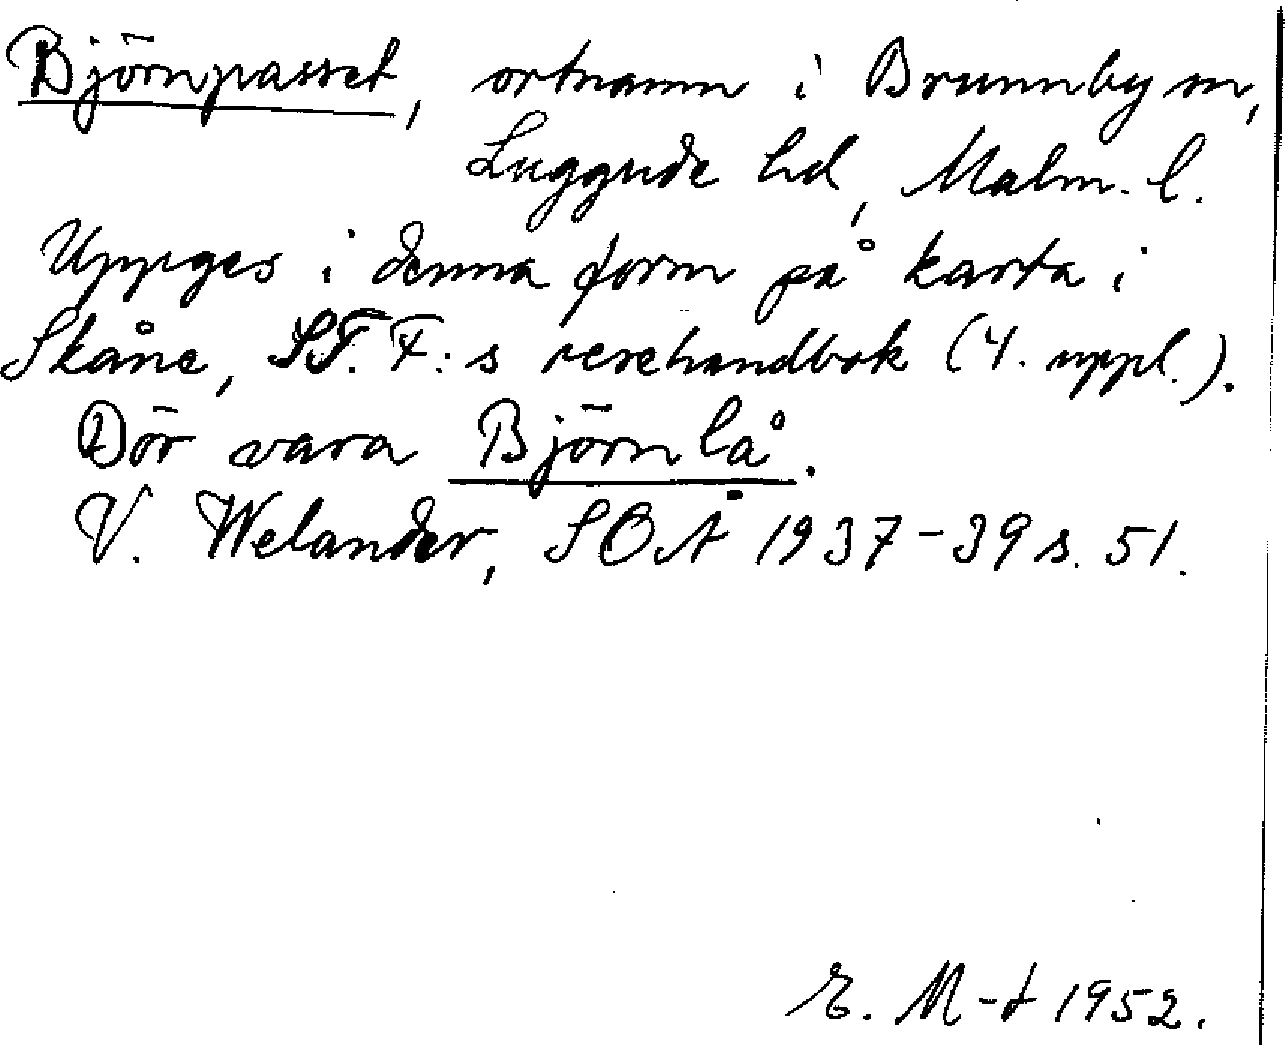 Björnpasset, ortnamn i Brunnby sn,
Luggude hd, Malm. l.
Uppges i denna form på karta i
Skåne, S.T.F.:s resehandbok (4. uppl.).
Bör vara Björnlå.
V. Welander, SOÅ 1937-39 s. 51.
E. M-t 1952.